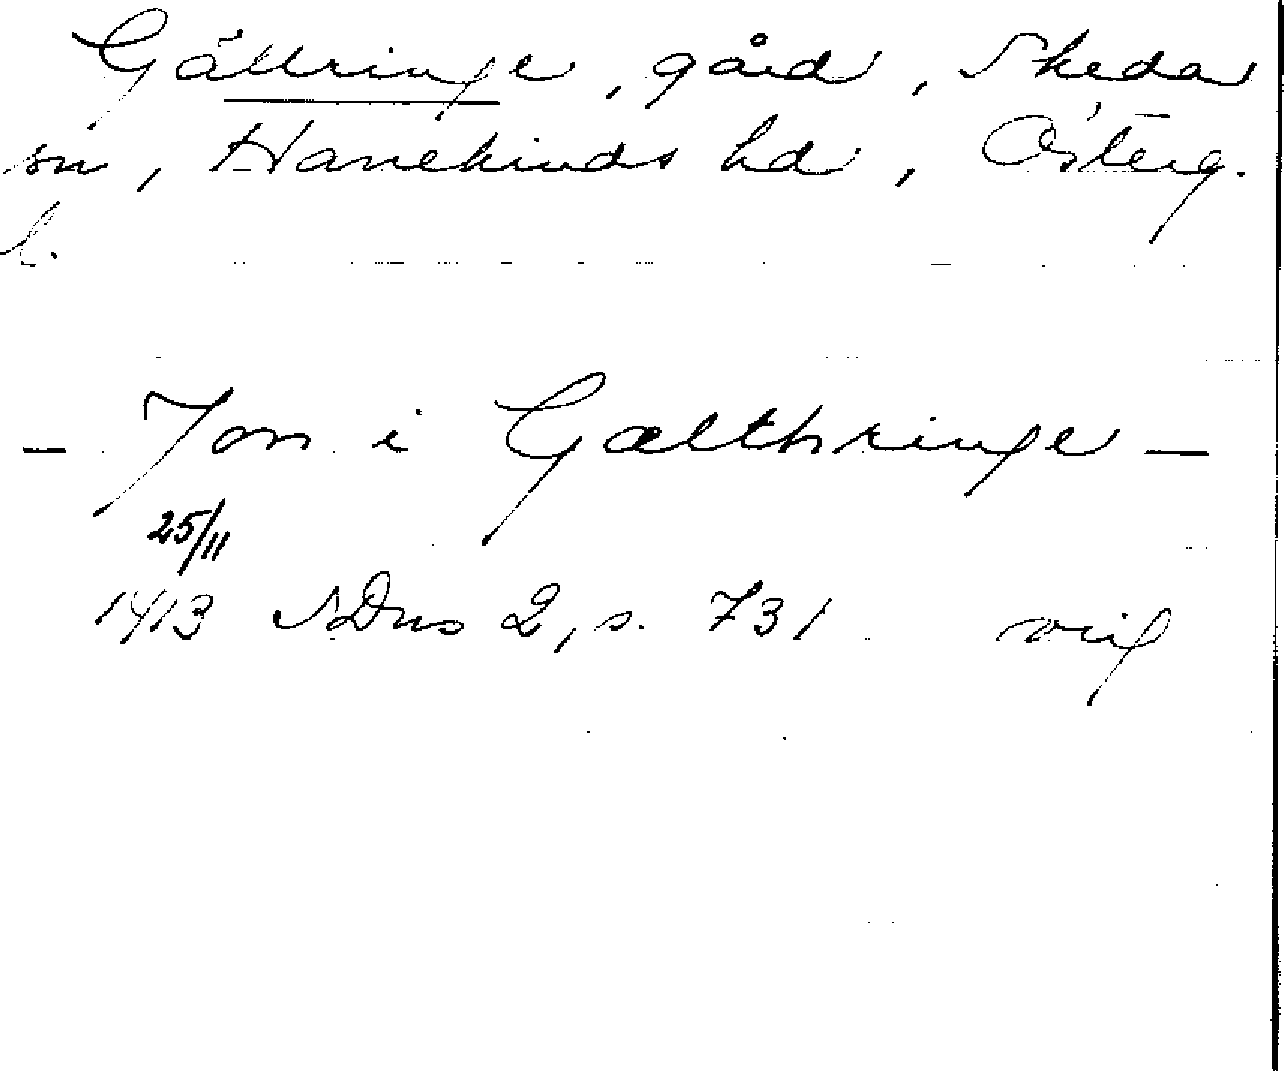 Gältringe, gård, Skeda
sn, Hanekinds hd, Österg.
l.
– Jon i Gælthringe –
25/11
1413 SDns 2, s. 731 orig